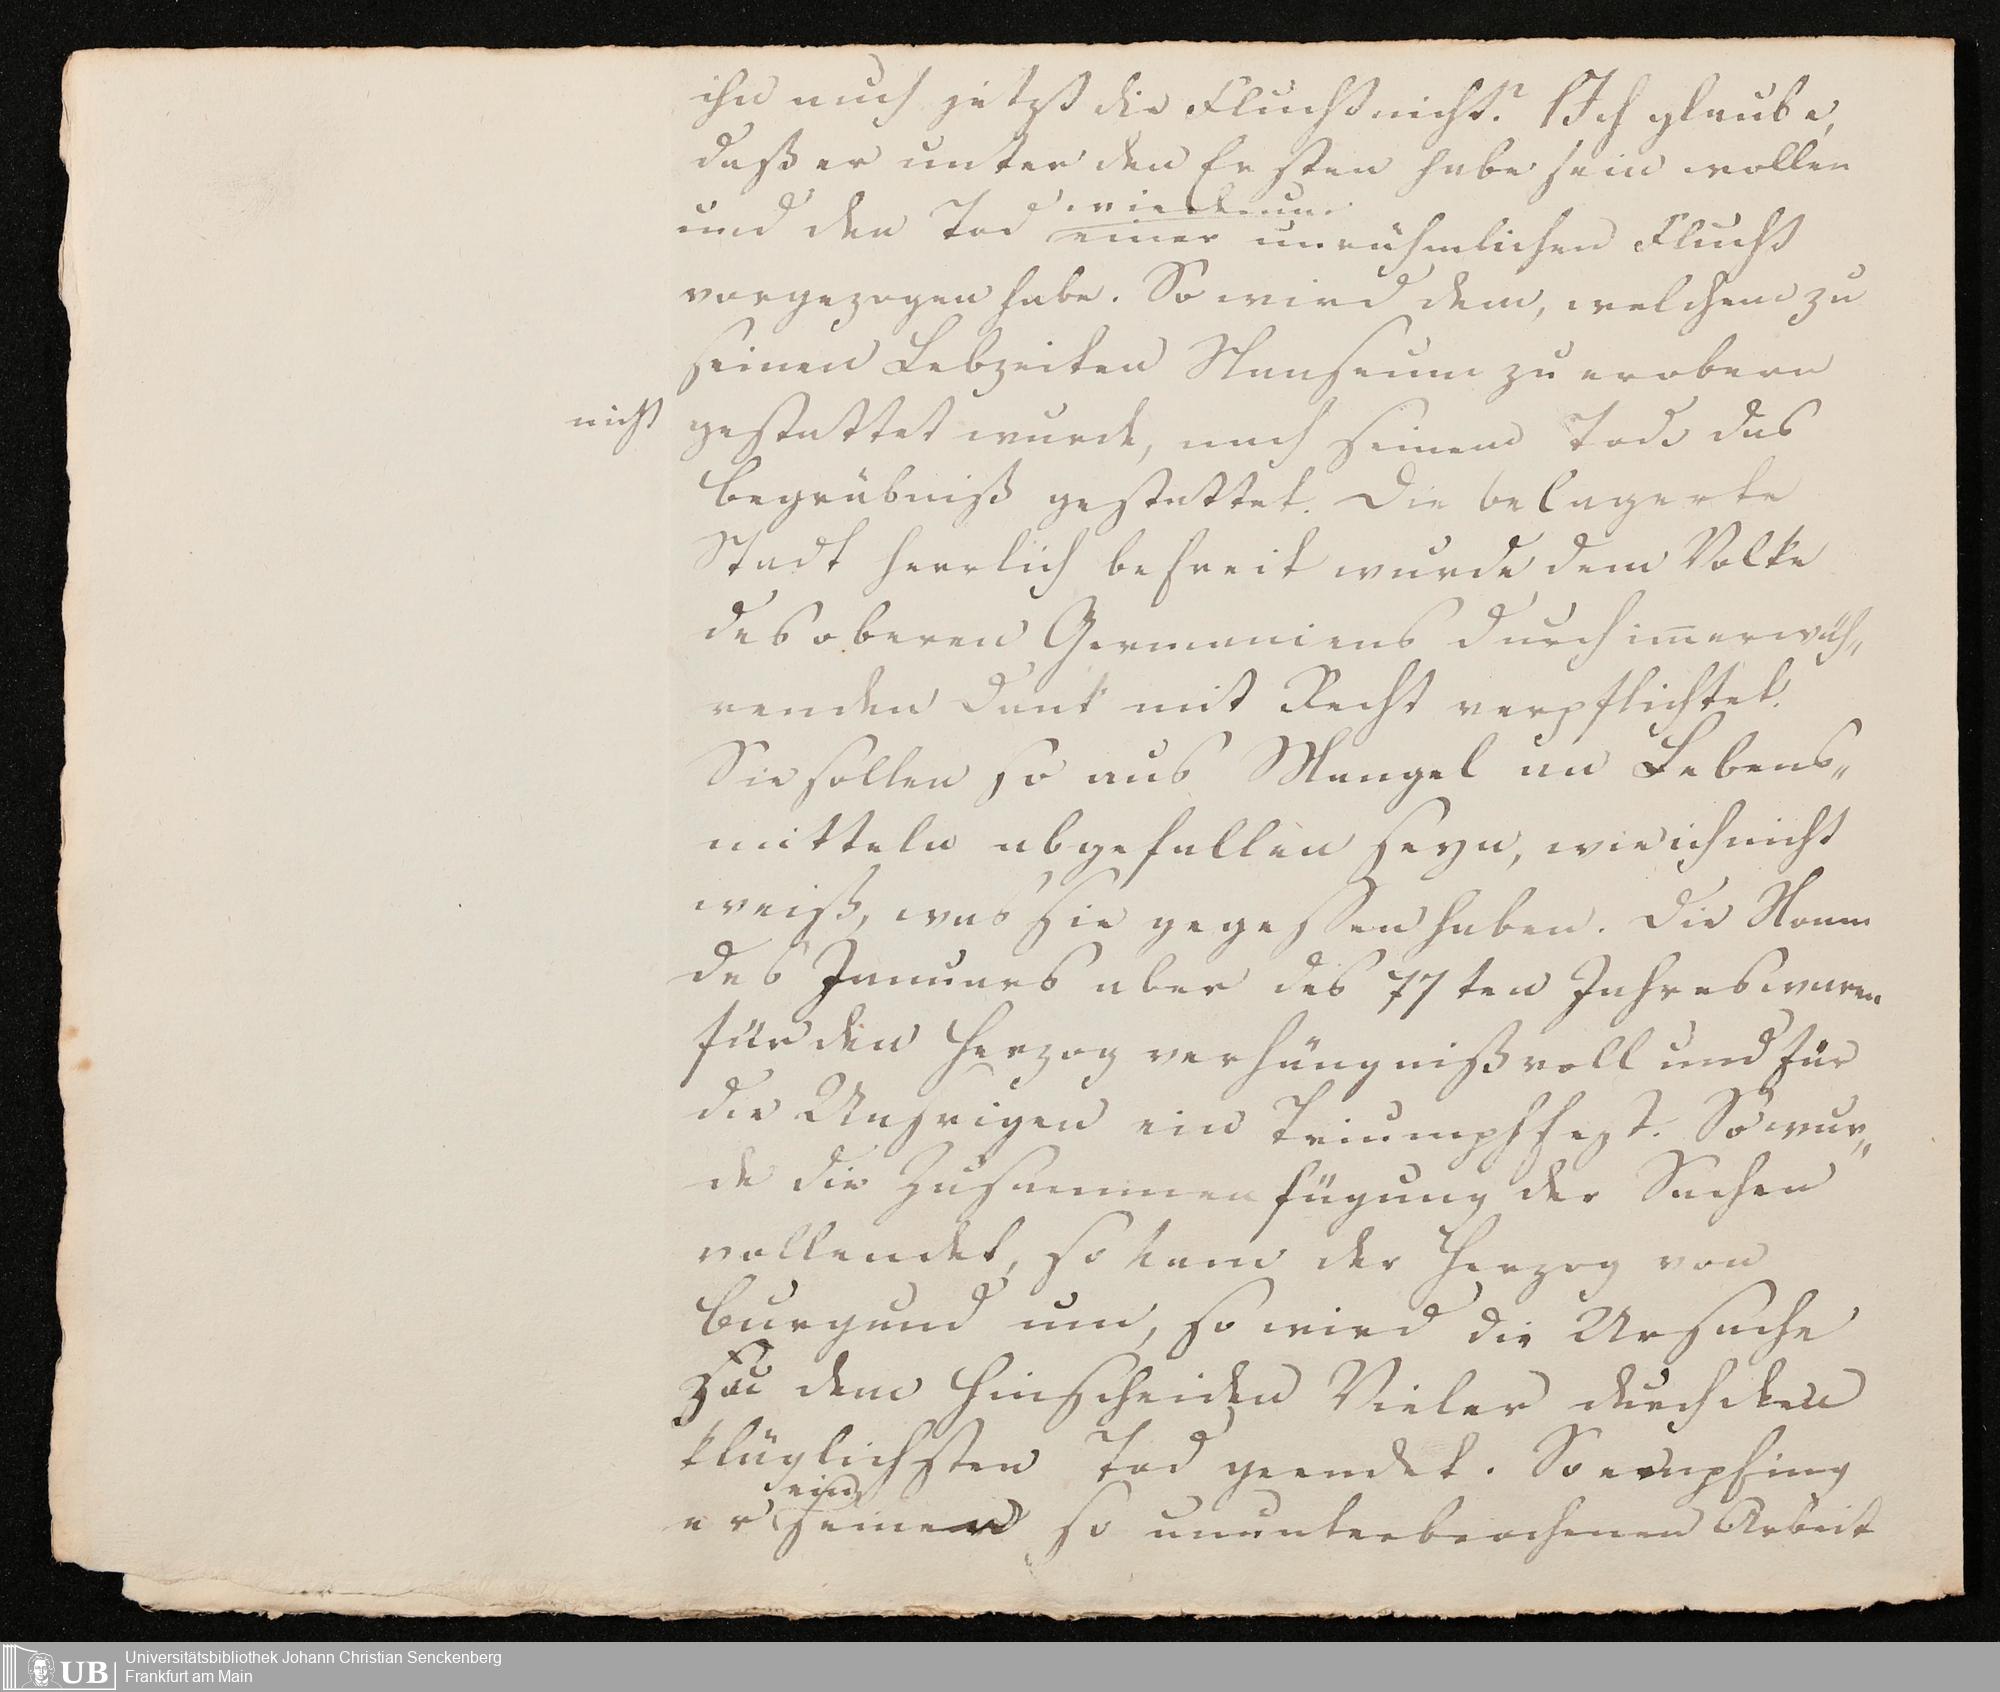 ihn auch jetzt die Flucht nicht? Ich glaube,
daß er unter den Ersten habe sein wollen
wiederum
und den Tod einer unrühmlichen Flucht
vorgezogen habe. So wird dem, welchem zu
seinen Lebzeiten Nanseum zu erobern
nicht gestattet wurde, nach seinem Tode das
Begräbniß gestattet. Die belagerte
Stadt herrlich befreit wurde dem Volke
des oberen Germaniens durch imerwäh„
renden Dank mit Recht verpflichtet.
Sie sollen so aus Mangel an Lebens„
mitteln abgefallen seyn, wie ich nicht
weiß, was sie gegessen haben. Die Nonen
des Januars aber des 77ten Jahres waren
für den Herzog verhängnißvoll und für
die Unsrigen ein Triumphfest. So wur„
de die Zusammenfügung der Sachen
vollendet, so kam der Herzog von
Burgund um, so wird die Ursache
zu dem Hinscheiden Vieler durch den
kläglichsten Tod geendet. So empfing
dein
er seiner so ununterbrochenen Arbeit
Universitätsbibliothek Johann Christian Senckenberg
Frankfurt am Main
UB